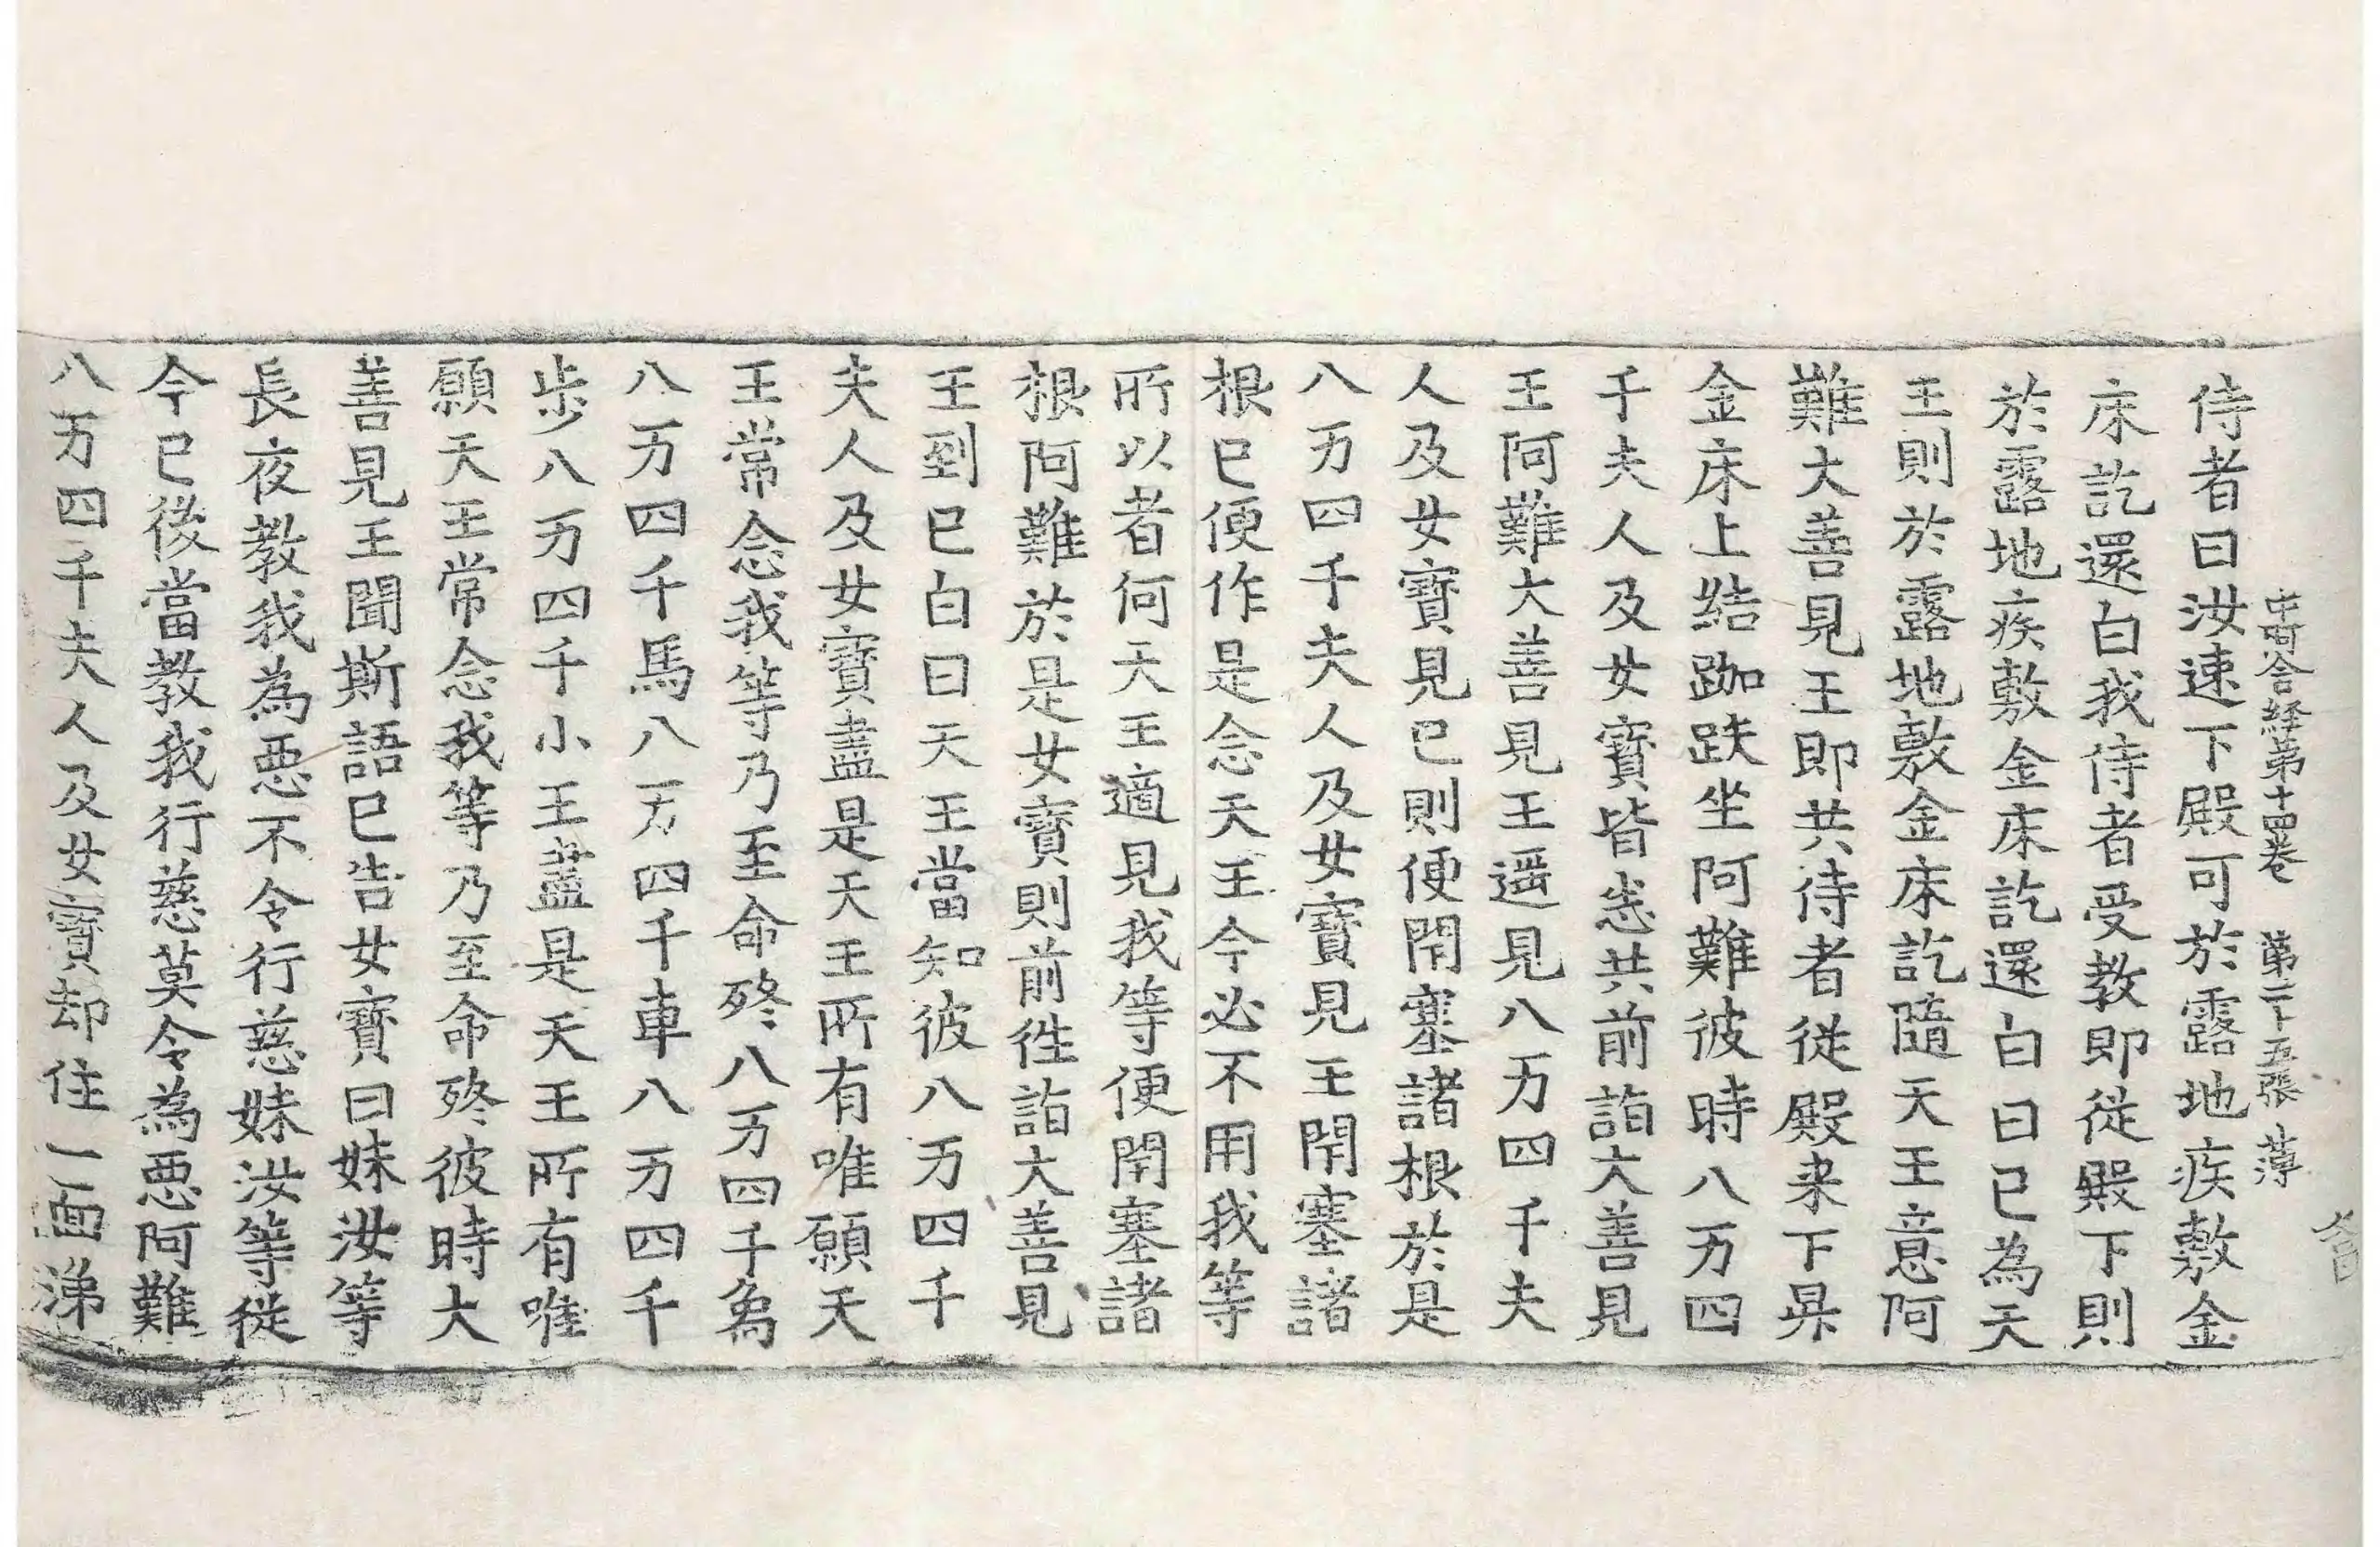 中阿含経第十四卷　第二十五張　薄
侍者曰汝速下殿可於露地疾敷金
床訖還白我侍者受教即従殿下則
於露地疾敷金床訖還白曰已為天
王則於露地敷金床訖隨天王意阿
難大善見王即共侍者従殿来下昇
金床上結跏趺坐阿難彼時八万四
千夫人及女寳皆悉共前詣大善見
王阿難大善見王遥見八万四千夫
人及女寳見已則便閇塞諸根於是
八万四千夫人及女寳見王閇塞諸
根已便作是念天王今必不用我等
所以者何天王適見我等便閇塞諸
根阿難於是女寳則前徃詣大善見
王到已白曰天王當知彼八万四千
夫人及女寳盡是天王所有唯願天
王常念我等乃至命終八万四千象
八万四千馬八万四千車八万四千
歩八万四千小王盡是天王所有唯
願天王常念我等乃至命終彼時大
善見王聞斯語已告女寳曰妹汝等
長夜教我為惡不令行慈妹汝等従
今已後當教我行慈莫令為惡阿難
八万四千夫人及女寳却住一面涕